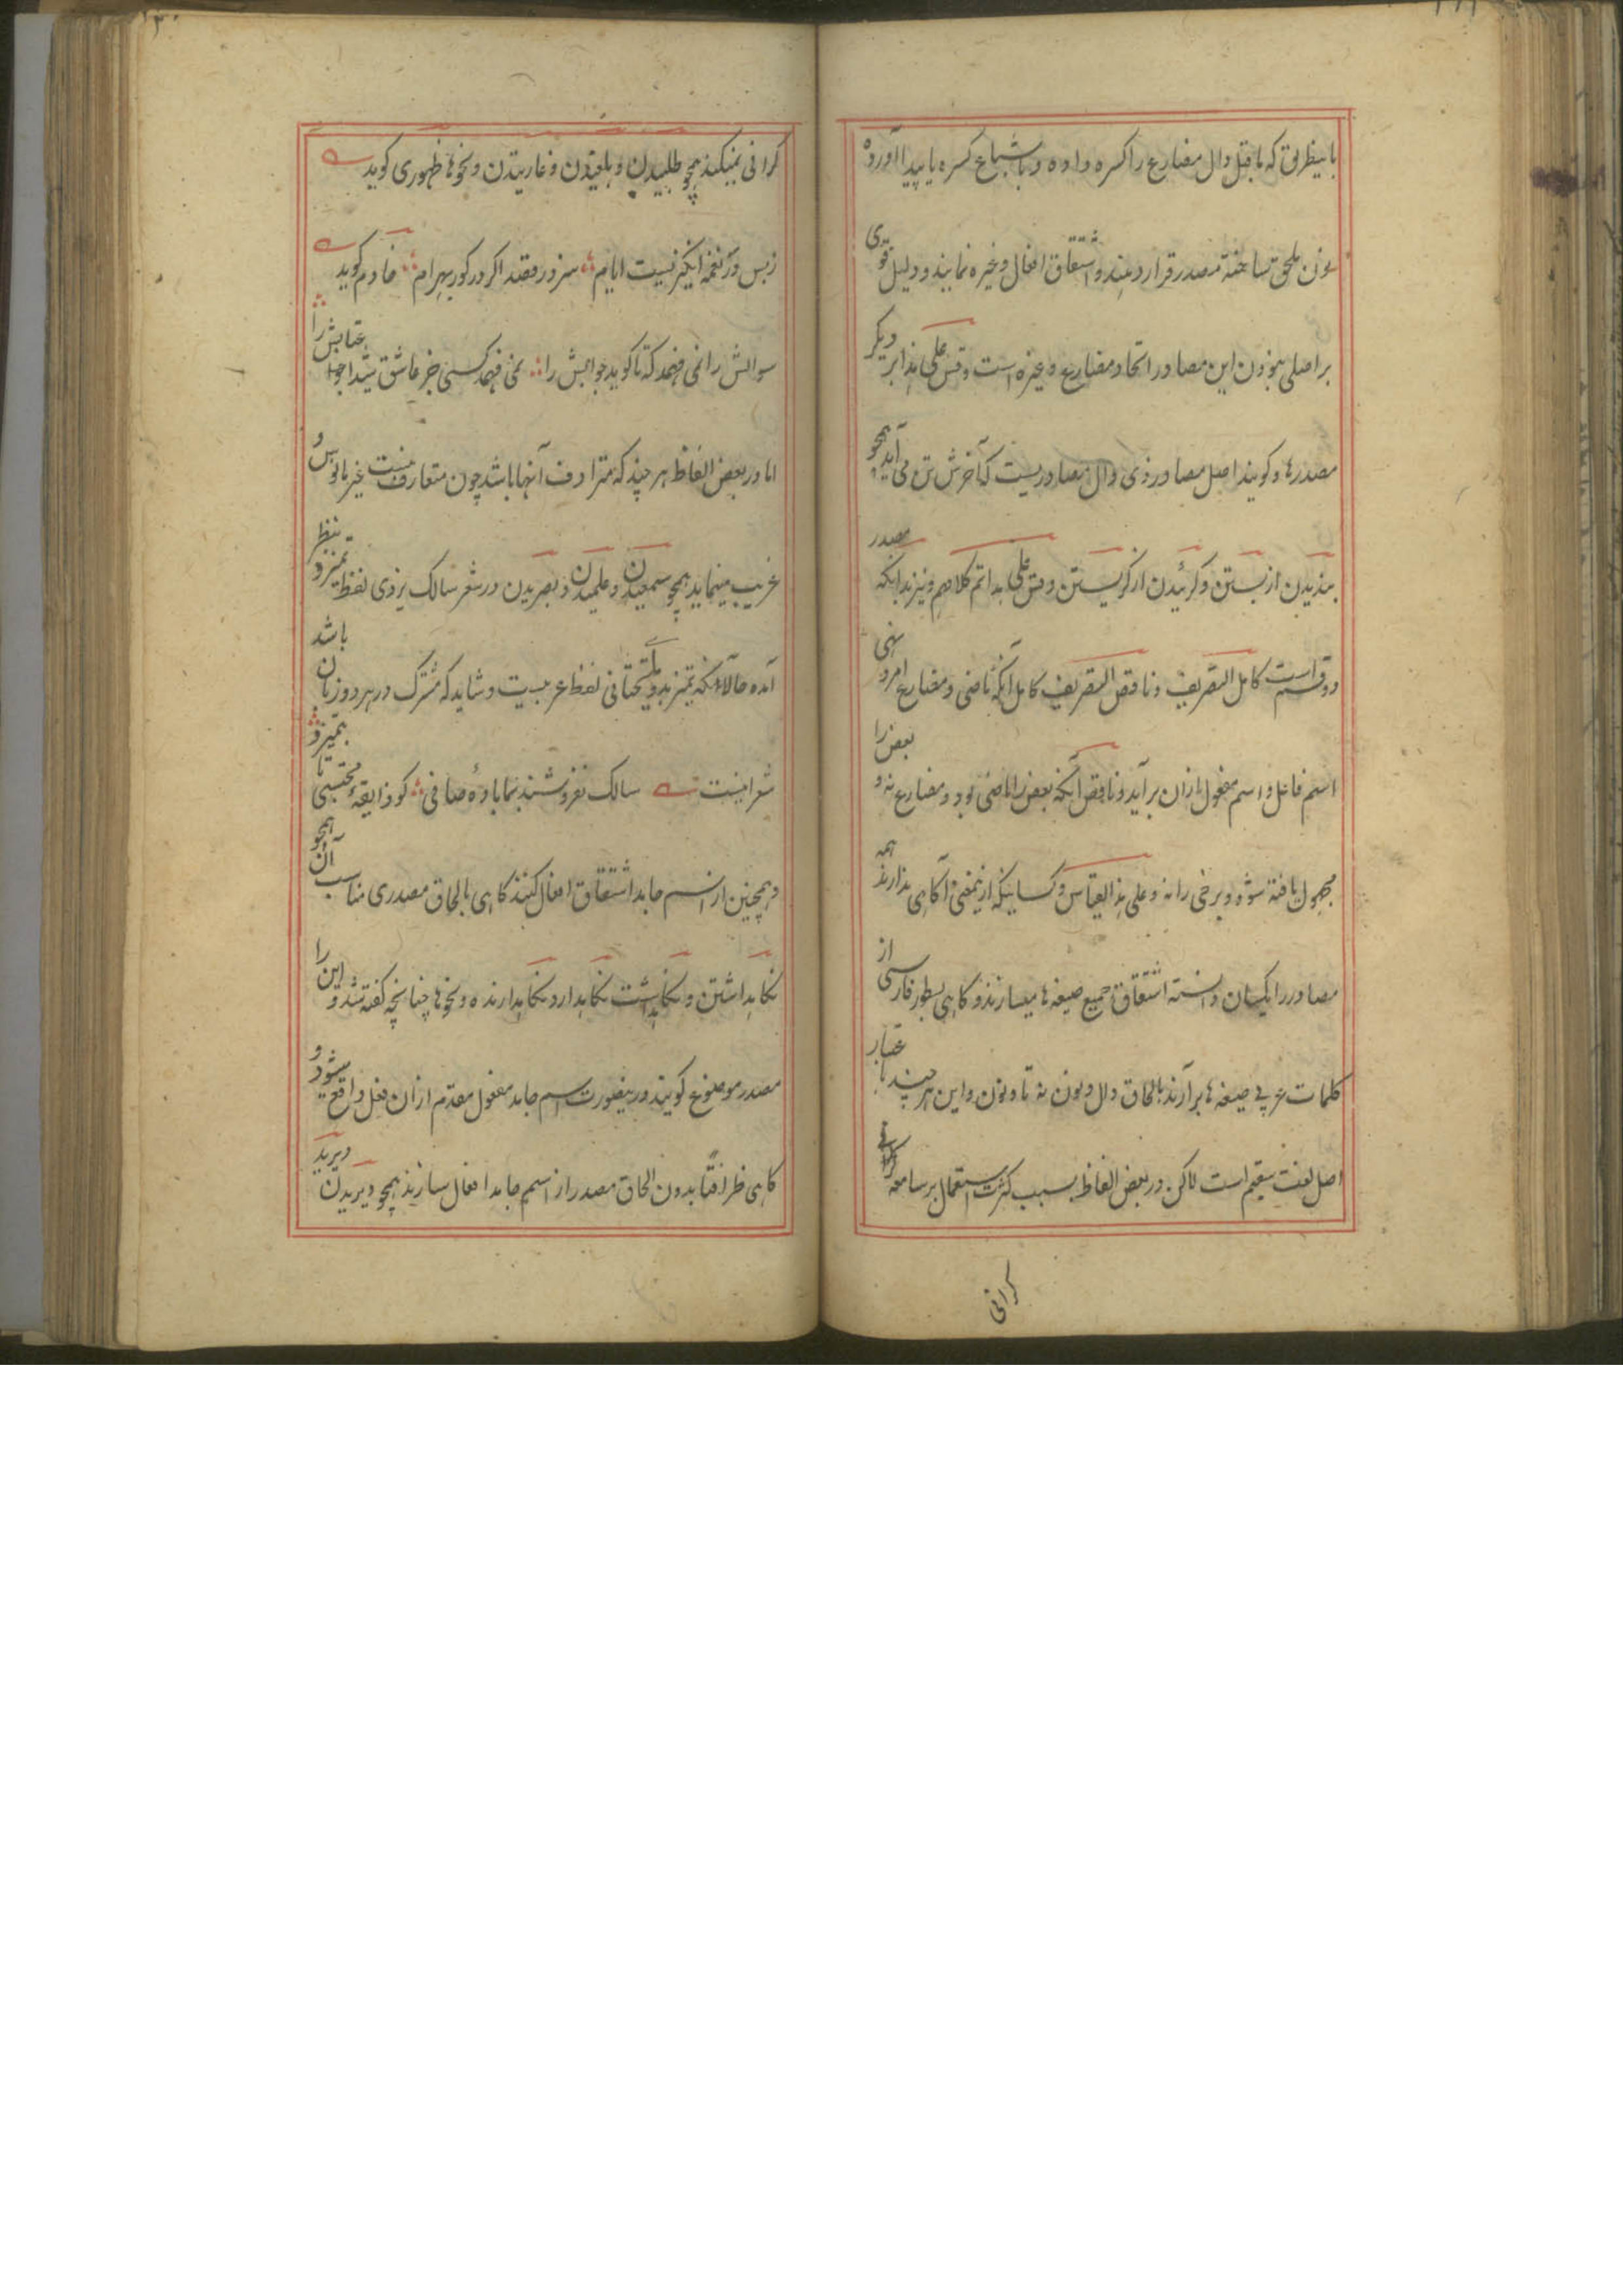 باینطریق که ماقبل دال مضارع را کسره داده و باشباع کسره یا پیدا آورده
نون ملحق ساخته مصدر قرار دهند و اشتقاق افعال و غیره نمایند و دلیل قوی
بر اصلی نبودن این مصادر اتحاد مضارع و غیره است وقس علی هذا بر دیگر
مصدرها و گویند اصل مصادر ذی دال مصادریست که آخرش تن می آید همچو
بندیدن از بستن و گرئیدن از گریستن وقس علی هذا تم کلامهم و نیز بدانکه مصدر
دو قسم است کامل التصریف و ناقص التصریف کامل آنکه ماضی و مضارع امر و نهی
اسم فاعل و اسم مفعول ازان برآید و ناقص آنکه بعض را ماضی بود و مضارع نه و بعض را
مجهول یافته شود و برخی را نه و علی هذا القیاس و کسانیکه ازینمعنی آگاهی ندارند همه
مصادر را یکسان دانسته اشتقاق جمیع صیغه ها میسازند و کاهی بطور فارسی از
کلمات عربی صیغه ها برآرند بالحاق دال و نون نه تا و نون و این هر چند باعتبار
اصل لغت سقیم است لاکن در بعض الفاظ بسبب کثرت استعمال بر سامعه گرانی
گرانی
گرانی نمیکند همچو طلبیدن و بلقیدن و غارتیدن و نحوها ظهوری گوید
زبس در نغمه انگیز نیست ایام سزد رقصد اگر در گور بهرام خادم گوید
سوالش را نمی فهمد که تا گوید جوابش را نمی فهمد کسی جز عاشق شیدا عتابش را
اما در بعض الفاظ هر چند که مترادف آنها باشد چون متعارف نیست غیر مانوس و
غریب مینماید همچو سمعیدن و علمیدن و بصریدن در شعر سالک یزدی لفظ تمیزد بنظر
آمده حالانکه تمیز بدو تحتانی لفظ عربیست و شاید که مشترک در هر دو زبان باشد
شعر اینست سالک نفروشند بما بادهٔ صافی کو ذایقهٔ محتسبی تا بتمیزد
و همچنین از اسم جامد اشتقاق افعال کنند کاهی بالحاق مصدری مناسب آن همچو
نگاهداشتن و نگاهداشت نگاهدارد و نگاهدارنده و نحوها چنانچه گفته شد و این را
مصدر موضوع گویند و درینصورت اسم جامد مفعول مقدم ازان فعل واقع میشود و
کاهی ظرافتاً بدون الحاق مصدر از اسم جامد افعال سازند همچو دیریدن دیرید